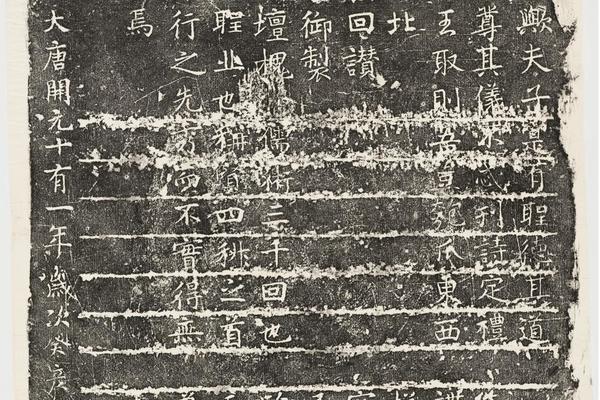 歟夫子實有聖德其道
尊其儀不忒刊詩定禮
王取則吾豈匏瓜東西
北
回讚
御製
壇槐儒術三千回也
聖丘也稱賢四科之首
行之先秀而不實得無
焉
大唐開元十有一年歲次癸亥